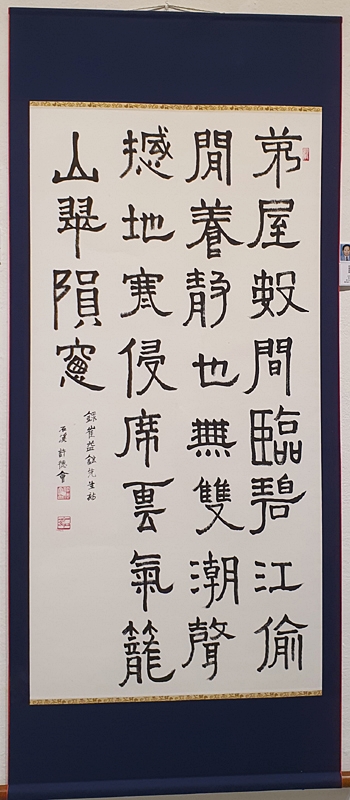 茅屋數間臨碧江偷
閒養靜也無雙潮聲
撼地寒侵席雲氣籠
山翠隕窻
錄崔益鉉先生
許德會